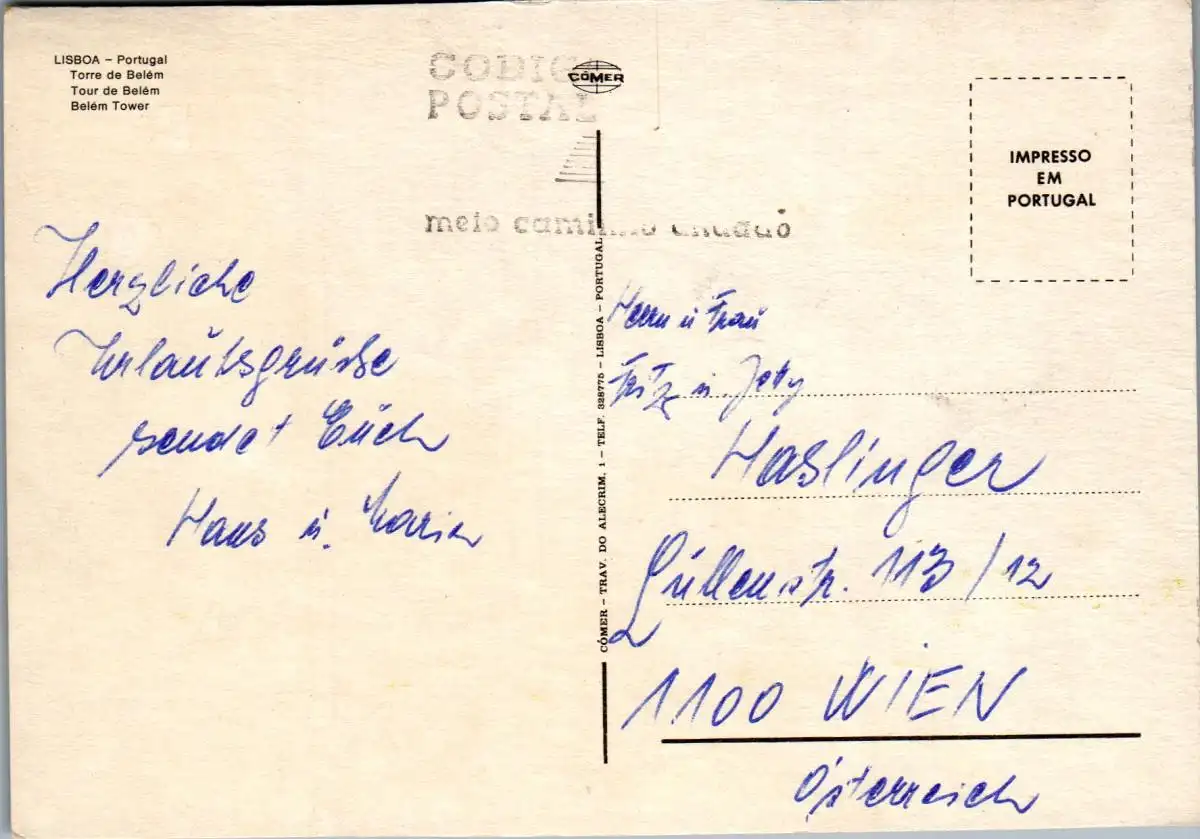 LISBOA – Portugal
Torre de Belém
Tour de Belém
Belém Tower
CODIGO
POSTAL
CÓMER
meio caminho andado
IMPRESSO
EM
PORTUGAL
Herzliche
Urlaubsgrüße
sendet Euch
Hans u. Maria
CÓMER – TRAV. DO ALECRIM, 1 – TELF. 328775 – LISBOA – PORTUGAL
Herrn u Frau
Fritz u.
Haslinger
113/12
1100 WIEN
Österreich